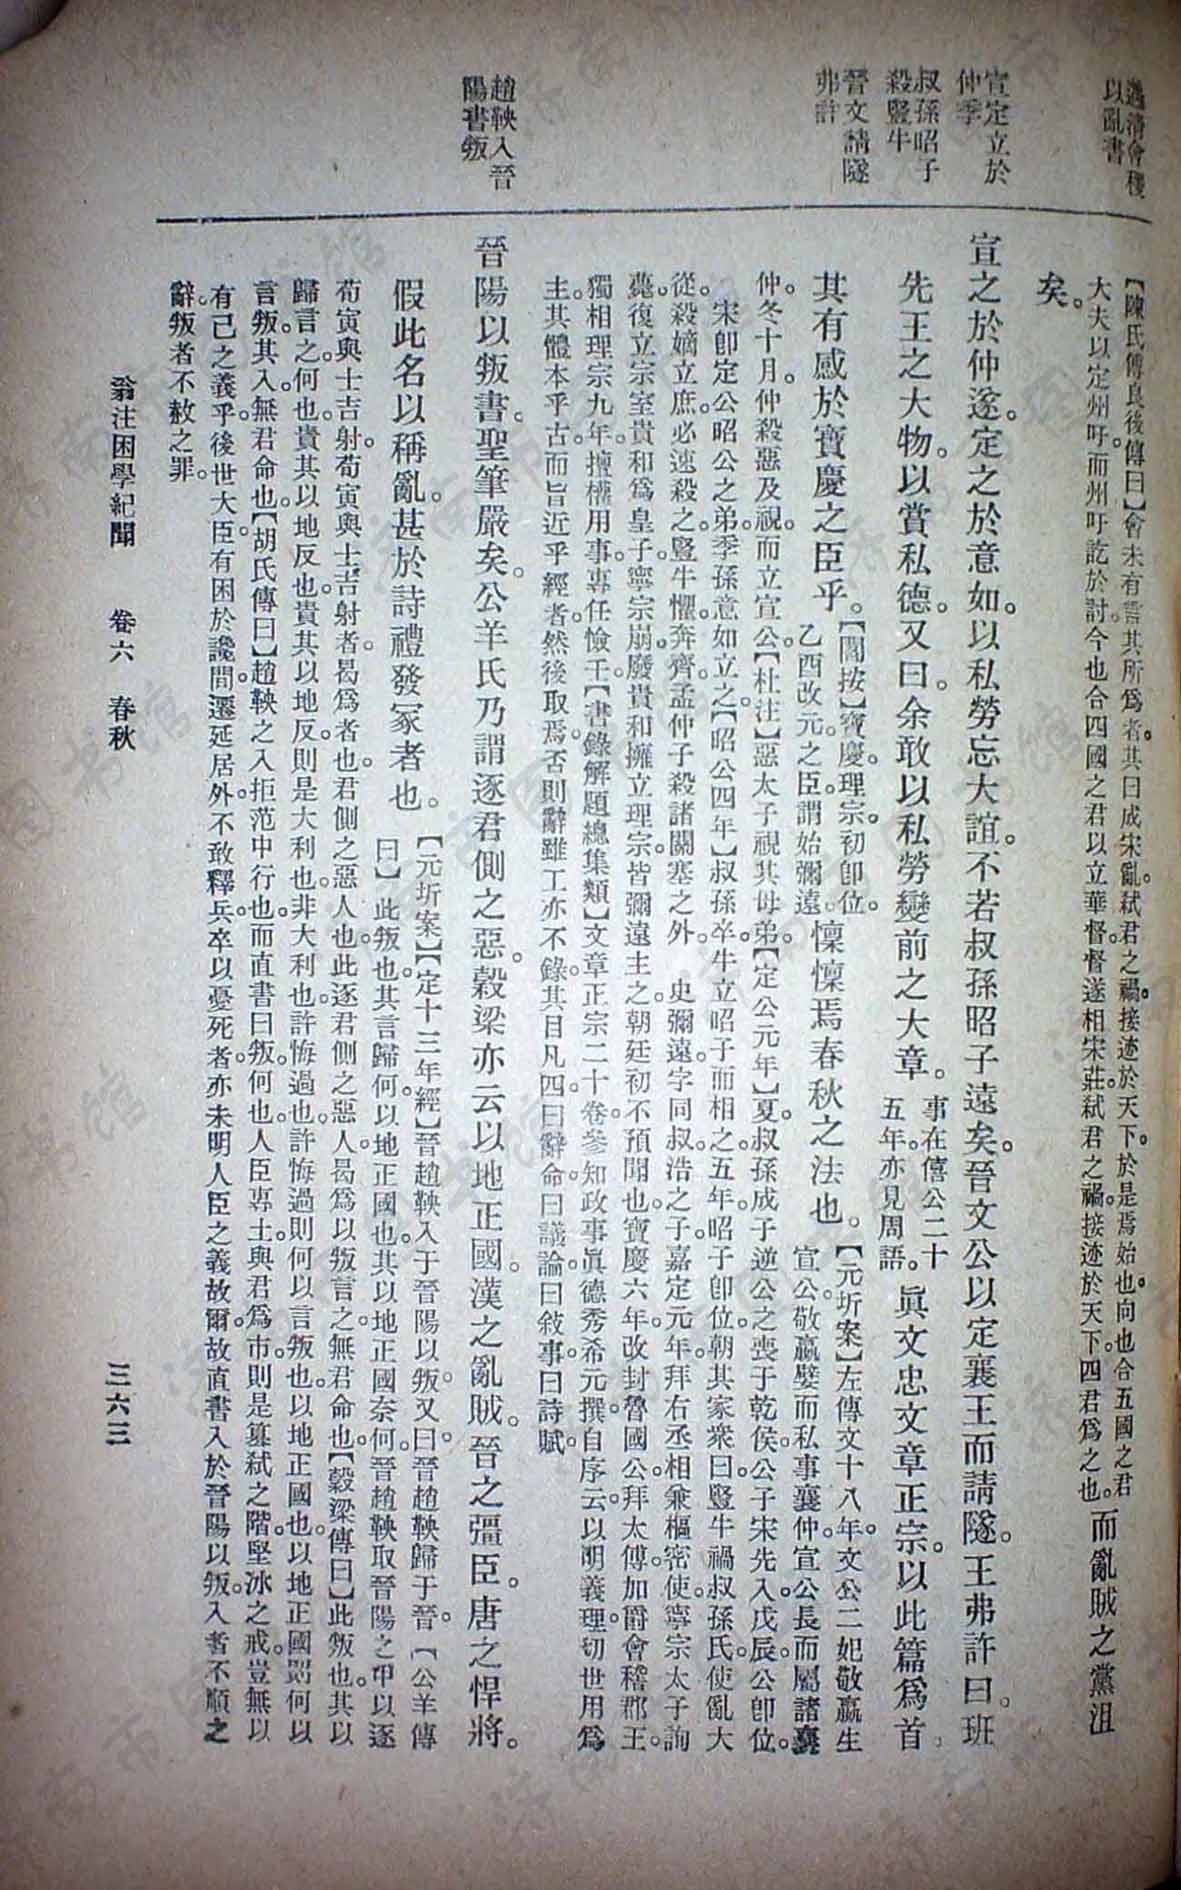 遇清會稷
以亂書
宣定立於
仲季
叔孫昭子
殺豎牛
晉文請隧
弗許
趙鞅入晉
陽書叛
【陳氏傅良後傳曰】會未有言其所爲者。其曰成宋亂。弒君之禍。接迹於天下。於是焉始也。向也合五國之君
大夫以定州吁。而州吁訖於討。今也合四國之君以立華督。督遂相宋莊。弒君之禍。接迹於天下。四君爲之也。
而亂賊之黨沮
矣。
宣之於仲遂。定之於意如。以私勞忘大誼。不若叔孫昭子遠矣。晉文公以定襄王而請隧。王弗許曰。班
先王之大物。以賞私德。又曰。余敢以私勞變前之大章。
事在僖公二十
五年。亦見周語。
眞文忠文章正宗。以此篇爲首。
其有感於寶慶之臣乎。
【閻按】寶慶。理宗初卽位。
乙酉改元。之臣。謂始彌遠。
懍懍焉春秋之法也。
【元圻案】左傳文十八年。文公二妃敬嬴生
宣公。敬嬴嬖而私事襄仲。宣公長而屬諸襄
仲。冬十月。仲殺惡及視而立宣公【杜注】惡太子視其母弟。【定公元年】夏。叔孫成子逆公之喪于乾侯。公子宋先入戊辰。公卽位。
宋卽定公昭公之弟。季孫意如立之【昭公四年】叔孫卒。牛立昭子而相之。五年。昭子卽位。朝其家衆曰。豎牛禍叔孫氏。使亂大
從。殺嫡立庶。必速殺之。豎牛懼。奔齊。孟仲子殺諸關塞之外。史彌遠。字同叔。浩之子。嘉定元年。拜右丞相兼樞密使。寧宗太子詢
薨。復立宗室貴和爲皇子。寧宗崩。廢貴和擁立理宗。皆彌遠主之。朝廷初不預聞也。寶慶六年。改封魯國公。拜太傅加爵會稽郡王。
獨相理宗九年。擅權用事。專任憸壬【書錄解題總集類】文章正宗二十卷。參知政事眞德秀希元撰。自序云。以明義理切世用爲
主。其體本乎古。而旨近乎經者。然後取焉。否則辭雖工亦不錄。其目凡四。曰辭命。曰議論。曰敍事。曰詩賦。
晉陽以叛書。聖筆嚴矣。公羊氏乃謂逐君側之惡。穀梁亦云以地正國。漢之亂賊。晉之彊臣。唐之悍將。
假此名以稱亂。甚於詩禮發冢者也。
【元圻案】【定十三年經】晉趙鞅入于晉陽以叛。又曰。晉趙鞅歸于晉。【公羊傳
曰】此叛也。其言歸何。以地正國也。其以地正國奈何。晉趙鞅取晉陽之甲以逐
荀寅與士吉射。荀寅與士吉射者。曷爲者也。君側之惡人也。此逐君側之惡人。曷爲以叛言之。無君命也。【穀梁傳曰】此叛也。其以
歸言之。何也。貴其以地反也。貴其以地反。則是大利也。非大利也。許悔過也。許悔過則何以言叛也。以地正國也。以地正國則何以
言叛。其入。無君命也。【胡氏傳曰】趙鞅之入。拒范中行也。而直書曰叛。何也。人臣專土。與君爲市。則是篡弒之階。堅冰之戒。豈無以
有己之義乎。後世大臣。有困於讒間。遷延居外。不敢釋兵卒。以憂死者。亦未明人臣之義故爾。故直書入於晉陽以叛。入者不順之
辭。叛者不赦之罪。
翁注困學紀聞 卷六 春秋 三六三